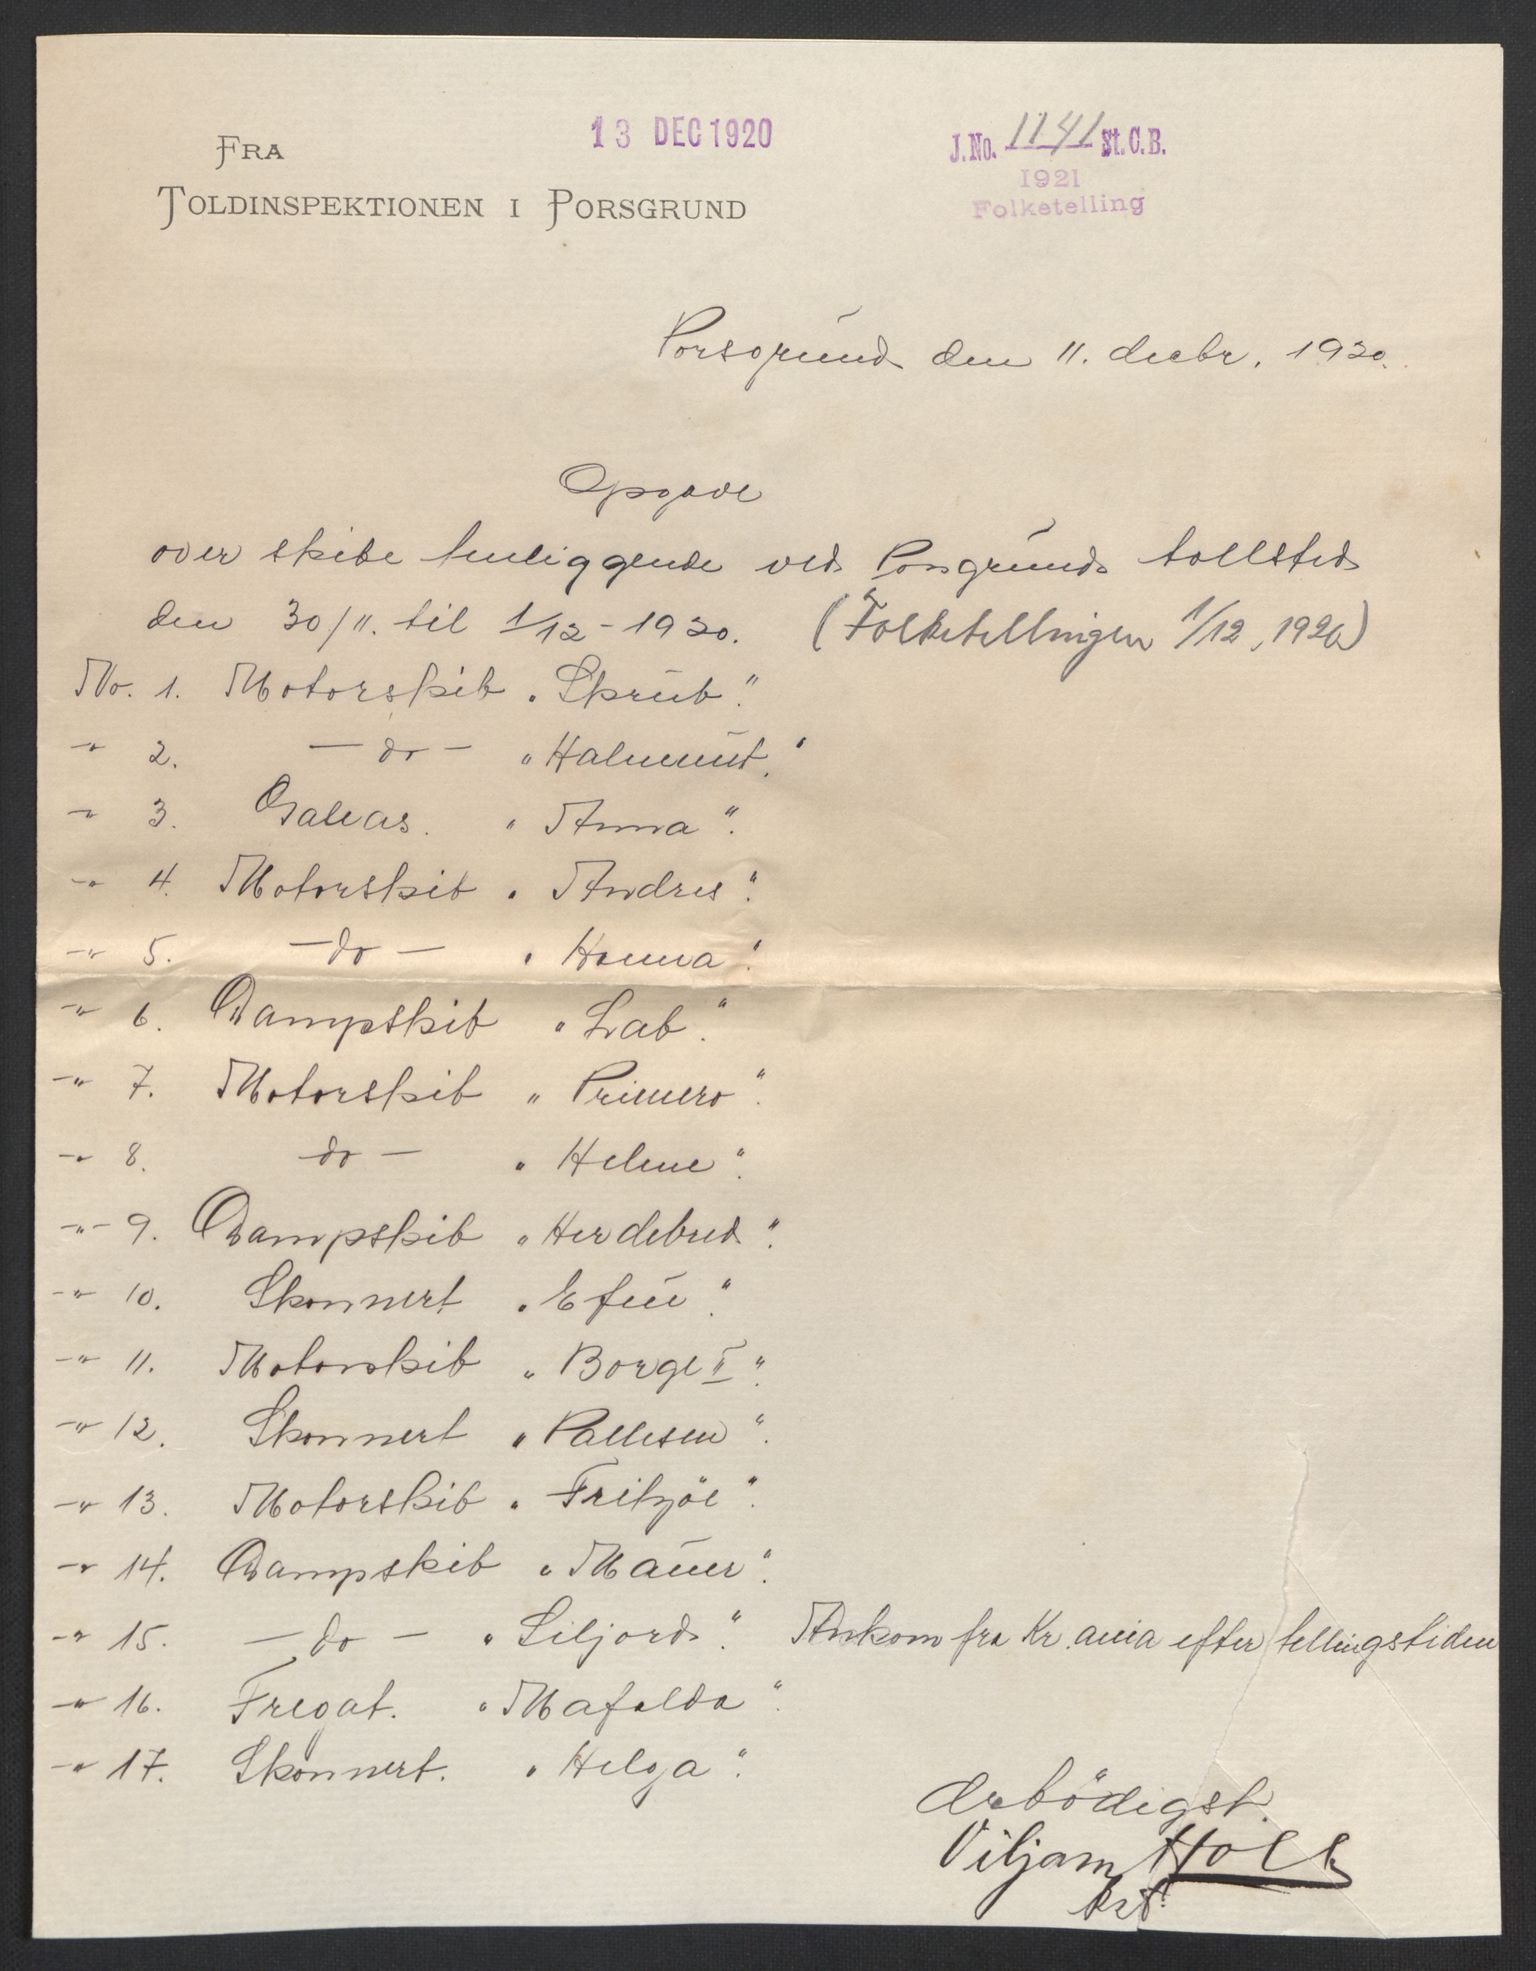 13 DEC 1920
J.No. 1141 St.C.B.
1921
Folketelling
FRA
TOLDINSPEKTIONEN I PORSGRUND
Porsgrund den 11. decbr. 1920.
Opgave
over skibe henliggende ved Porsgrunds tollsted
den 30/11. til 1/12 - 1920. (Folketellingen 1/12, 1920)
No. 1. Motorskib „Skrub“.
-"- 2. - do - „Halmunt“.
-"- 3. Galeas. „Anna“.
-"- 4. Motorskib „Andres“.
-"- 5. - do - „Hanna“.
-"- 6. Dampskib „Lab“.
-"- 7. Motorskib „Primero“.
-"- 8. do - „Helene“.
-"- 9. Dampskib „Herdebred“.
-"- 10. Skonnert „Efeu“.
-"- 11. Motorskib „Borge II“.
-"- 12. Skonnert „Pallesen“.
-"- 13. Motorskib „Fritzöe“.
-"- 14. Dampskib „Mauer“.
-"- 15. - do - „Siljord“. Ankom fra Kr.ania efter tellingstiden
-"- 16. Fregat. „Mafalda“.
-"- 17. Skonnert. „Helga“.
Ærbödigst.
Viljam Holt